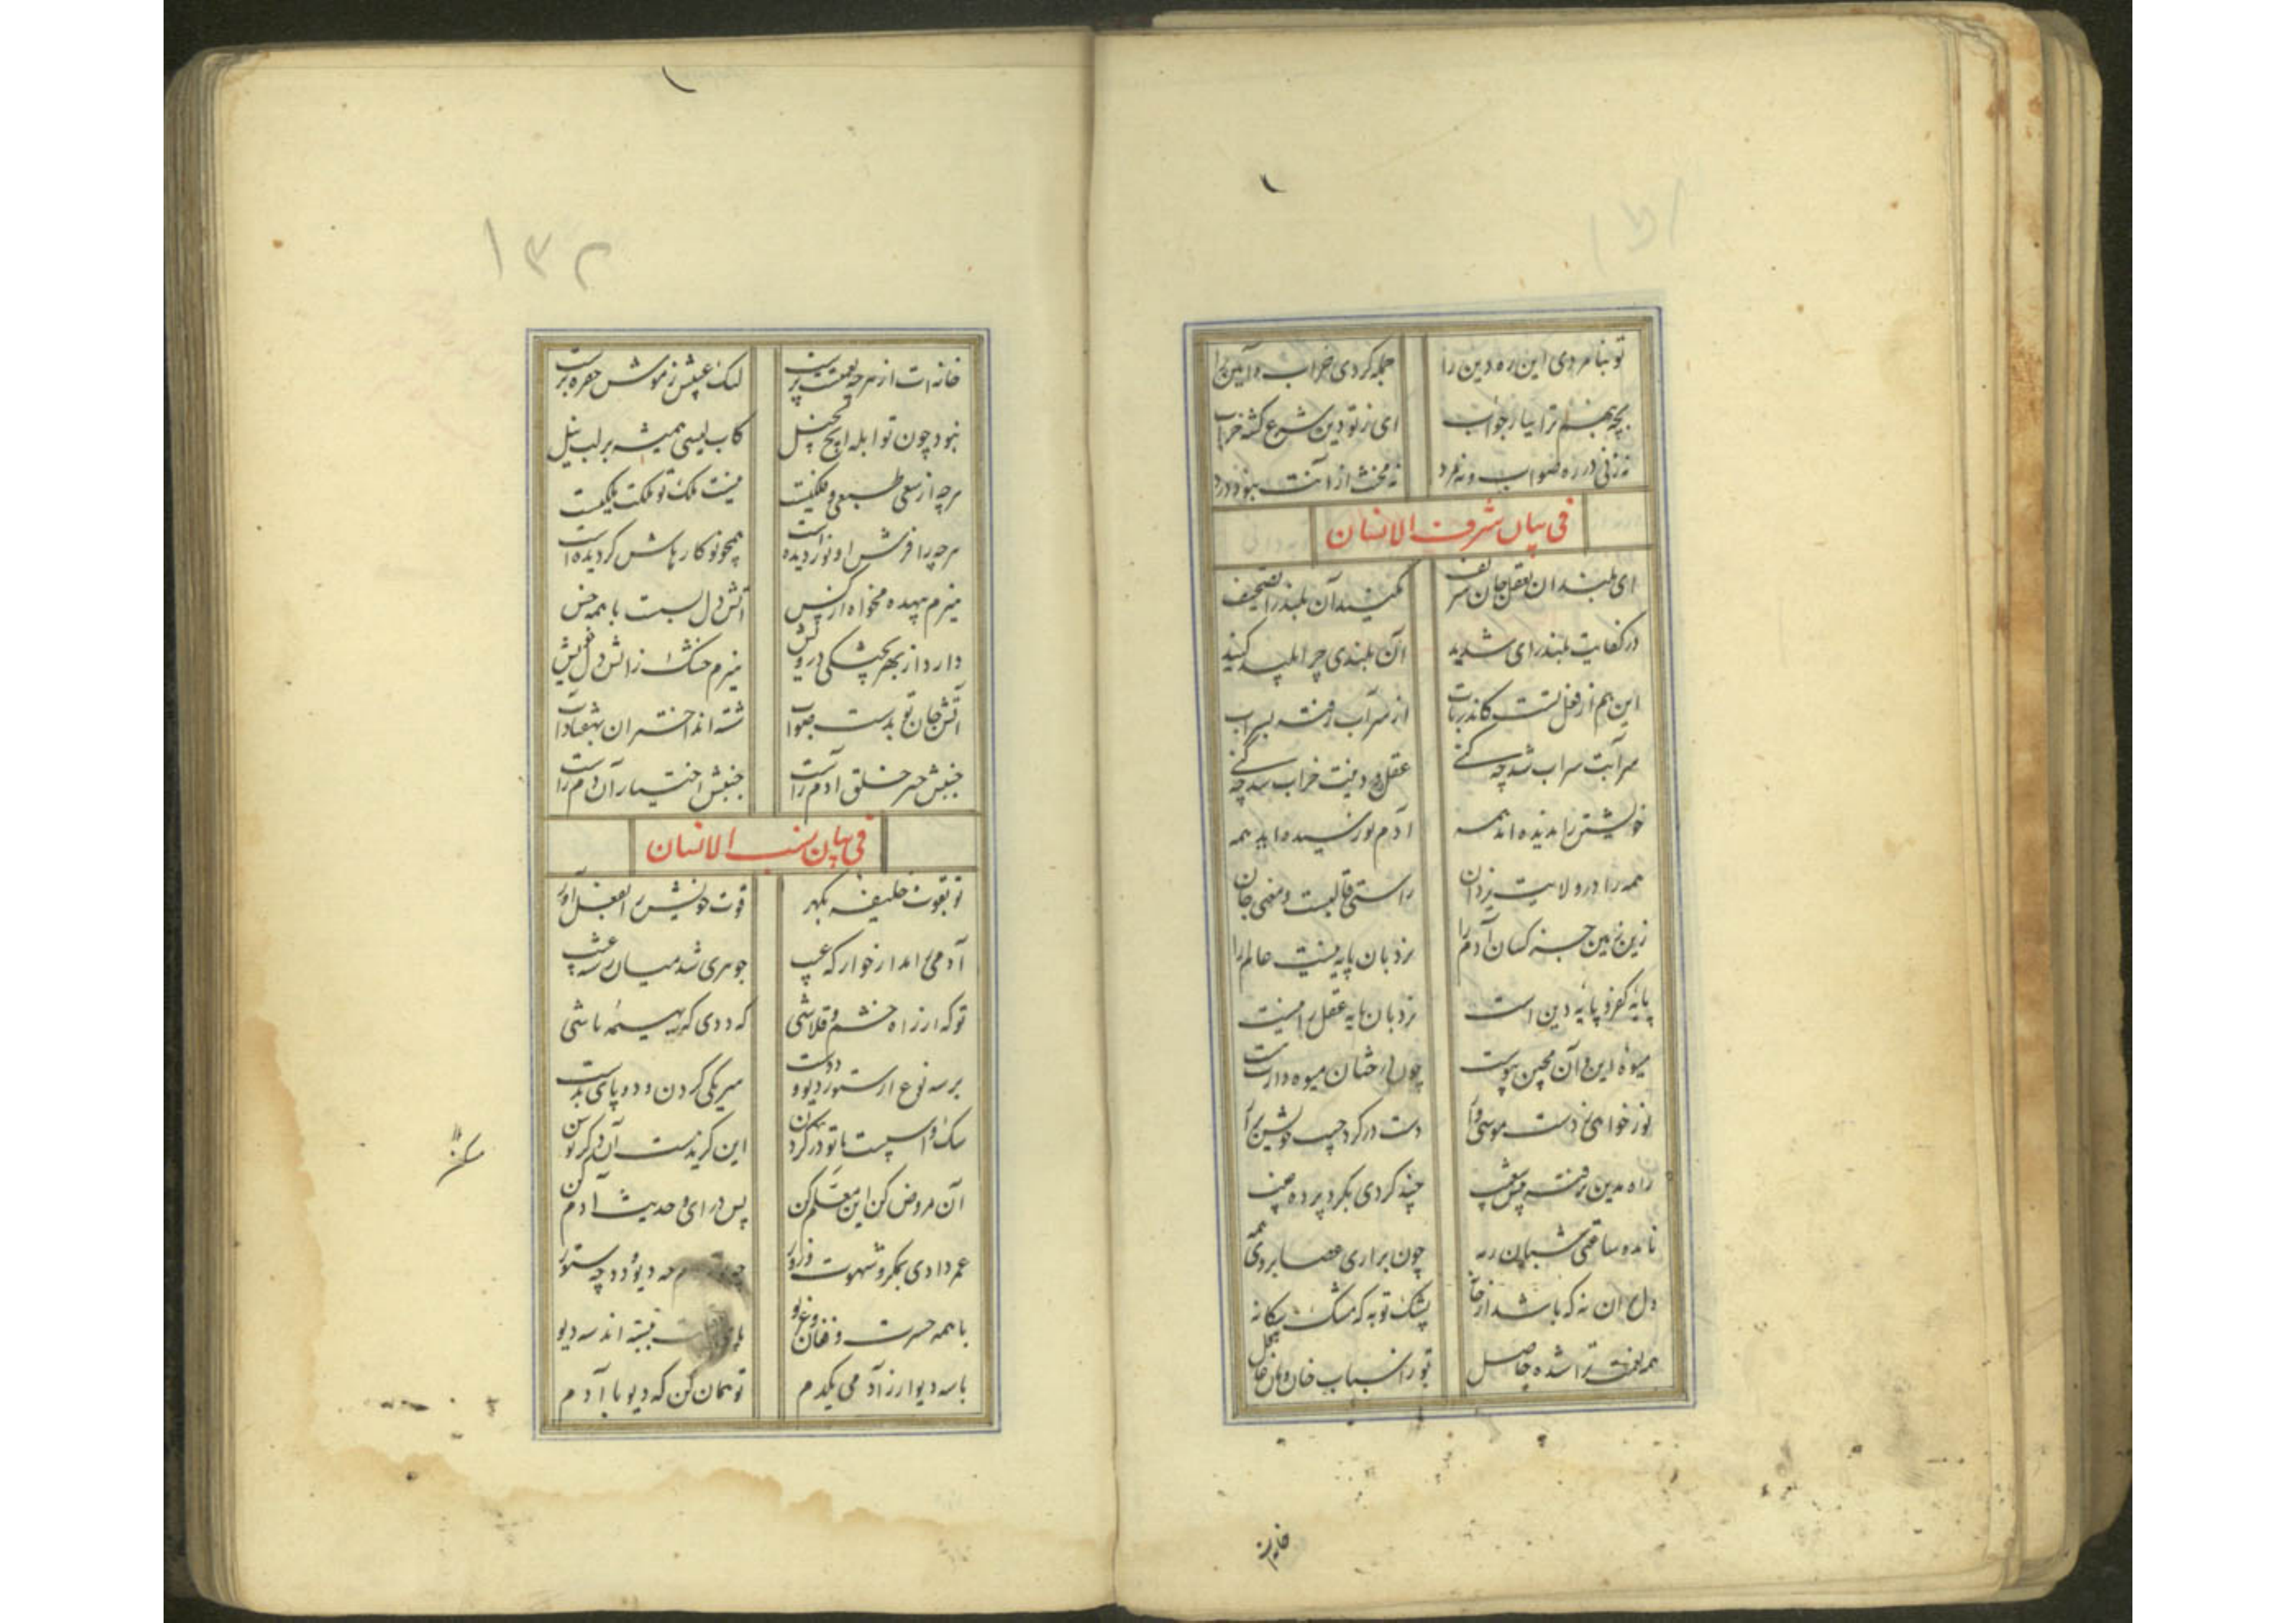 تو بنامردی این ره دین را
جمله کردی خراب و آیین را
بچه بهنم ترا بیار جواب
ای ز تو دین شرع گشته خراب
نه زنی در ره صواب و نه مرد
نه مخنث از آنت نبود درد
فی بیان شرف الانسان
ای بلندان بعقل و جان شریف
مکنید آن بلند را تصحیف
در کفایت بلند رای شدید
آن بلندی چرا پلید کنید
این هم از فعل تست کاندر باب
از سر آب رفته بسراب
سر آبت سراب شد چه کنی
عقل و دینت خراب شد چه کنی
خویشتن را بدیده اند همه
آدم نورسیده اند همه
همه را در ولایت یزدان
راستی قالبست و معنی جان
زین زمین جز کسان آدم را
نردبان پایه نیست عالم را
پایه کفر و پایه دین است
نردبان پایه عقل را اینست
میوه این و آن مچین پیوست
چون درختان میوه دار
نور خواهی ز دست موسی وار
دست در گرد جیب خویش آر
راه مدین نرفته پیش شعیب
چند گردی بگرد پرده غیب
نابده ساعتی شبان رمه
چون برآری عصا بر دمه
دل آن نه که باشد از خانه
پشک تو به که مشک بیگانه
همه نعمت ترا شده حاصل
تو ر اسباب خان و مان غافل
خانه ات
۱۳۲
خانه ات از هر چه نعمت پرست
لیک عیشش ز موش حفره برست
نبود چون تو ابله ایچ بخیل
کاب لیسی همیشه بر لب نیل
هرچه از سعی طبعی و فلکیست
نیست ملک تو ملکت ملکیست
هرچه را فرش او نوردیده است
همچو نو کارهاش گردیده است
هیزم بیهده مخواه از کس
آتش دل بست با همه خس
دارد از بهر پختگی درویش
هیزم خشک ز آتش دل خویش
آتش جان تو بدست صواب
شسته اند اختران بهفتاد آب
جنبش جبر خلق آدم راست
جنبش اختیار آن دم راست
فی بیان نسب الانسان
تو بقوت خلیفه بگهر
قوت خویش را بفعل آور
آدمی را مدار خوار که غیب
جوهری شد میان رسته عیب
تو که از راه خشم و قلاشی
که ددی گه بهیمه باشی
بر سه نوع از ستور و دیو و ددت
میر یکی کردن و دو پای بدست
سگ و اسپیست با تو در
این گزندست آن دگر توسن
آن مروض کن این معلم کن
پس درای و حدیث آدم کن
عمر دادی بمکر و شهوت و زور
چه دیو و دد چه ستور
با همه حسرت و فغان و غریو
بسته اند سه دیو
با سه دیو ار ز آدمی یکدم
تو گمان کن که دیو با آدم